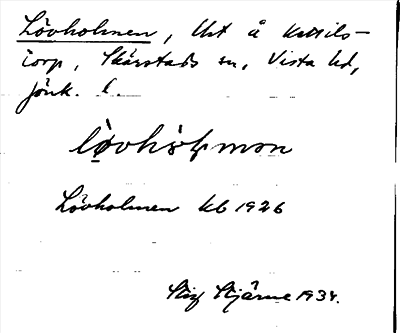 Lövholmen, Urt å Kettils-
torp, Skärstads sn, Vista hd,
Jönk. l.
lövhòḷmən
Lövholmen kb 1926
Stig Stjärne 1934.